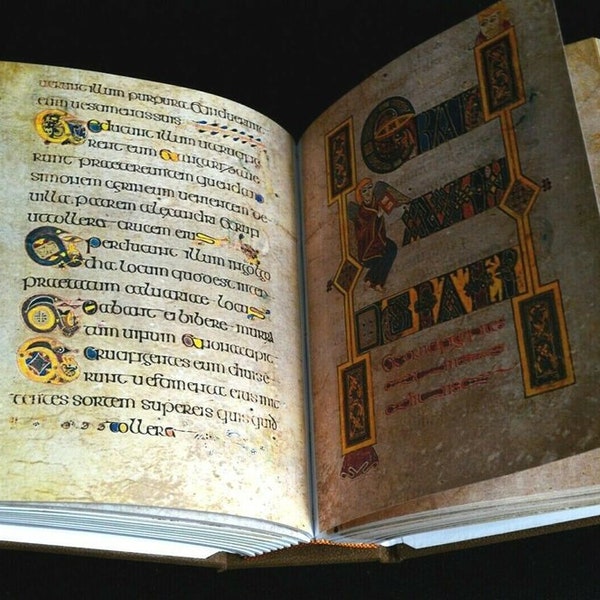 uerunt illum purpura & induerunt
eum uestimentis suis
Et educunt illum ut crucifige
rent eum Et angarizaue
runt praetereuntem quendam
simonem cirineum uenientem de
uilla patrem alexandri & rufi
ut tolleret crucem eius
Et perducunt illum in golgo
tha locum quod est inter
praetatum caluariae locus
Et dabant ei bibere murra
tum uinum & non accepit
Et crucifigentes eum diuise
runt uestimenta eius mit
tentes sortem super eis quis quid
tolleret
ERAT